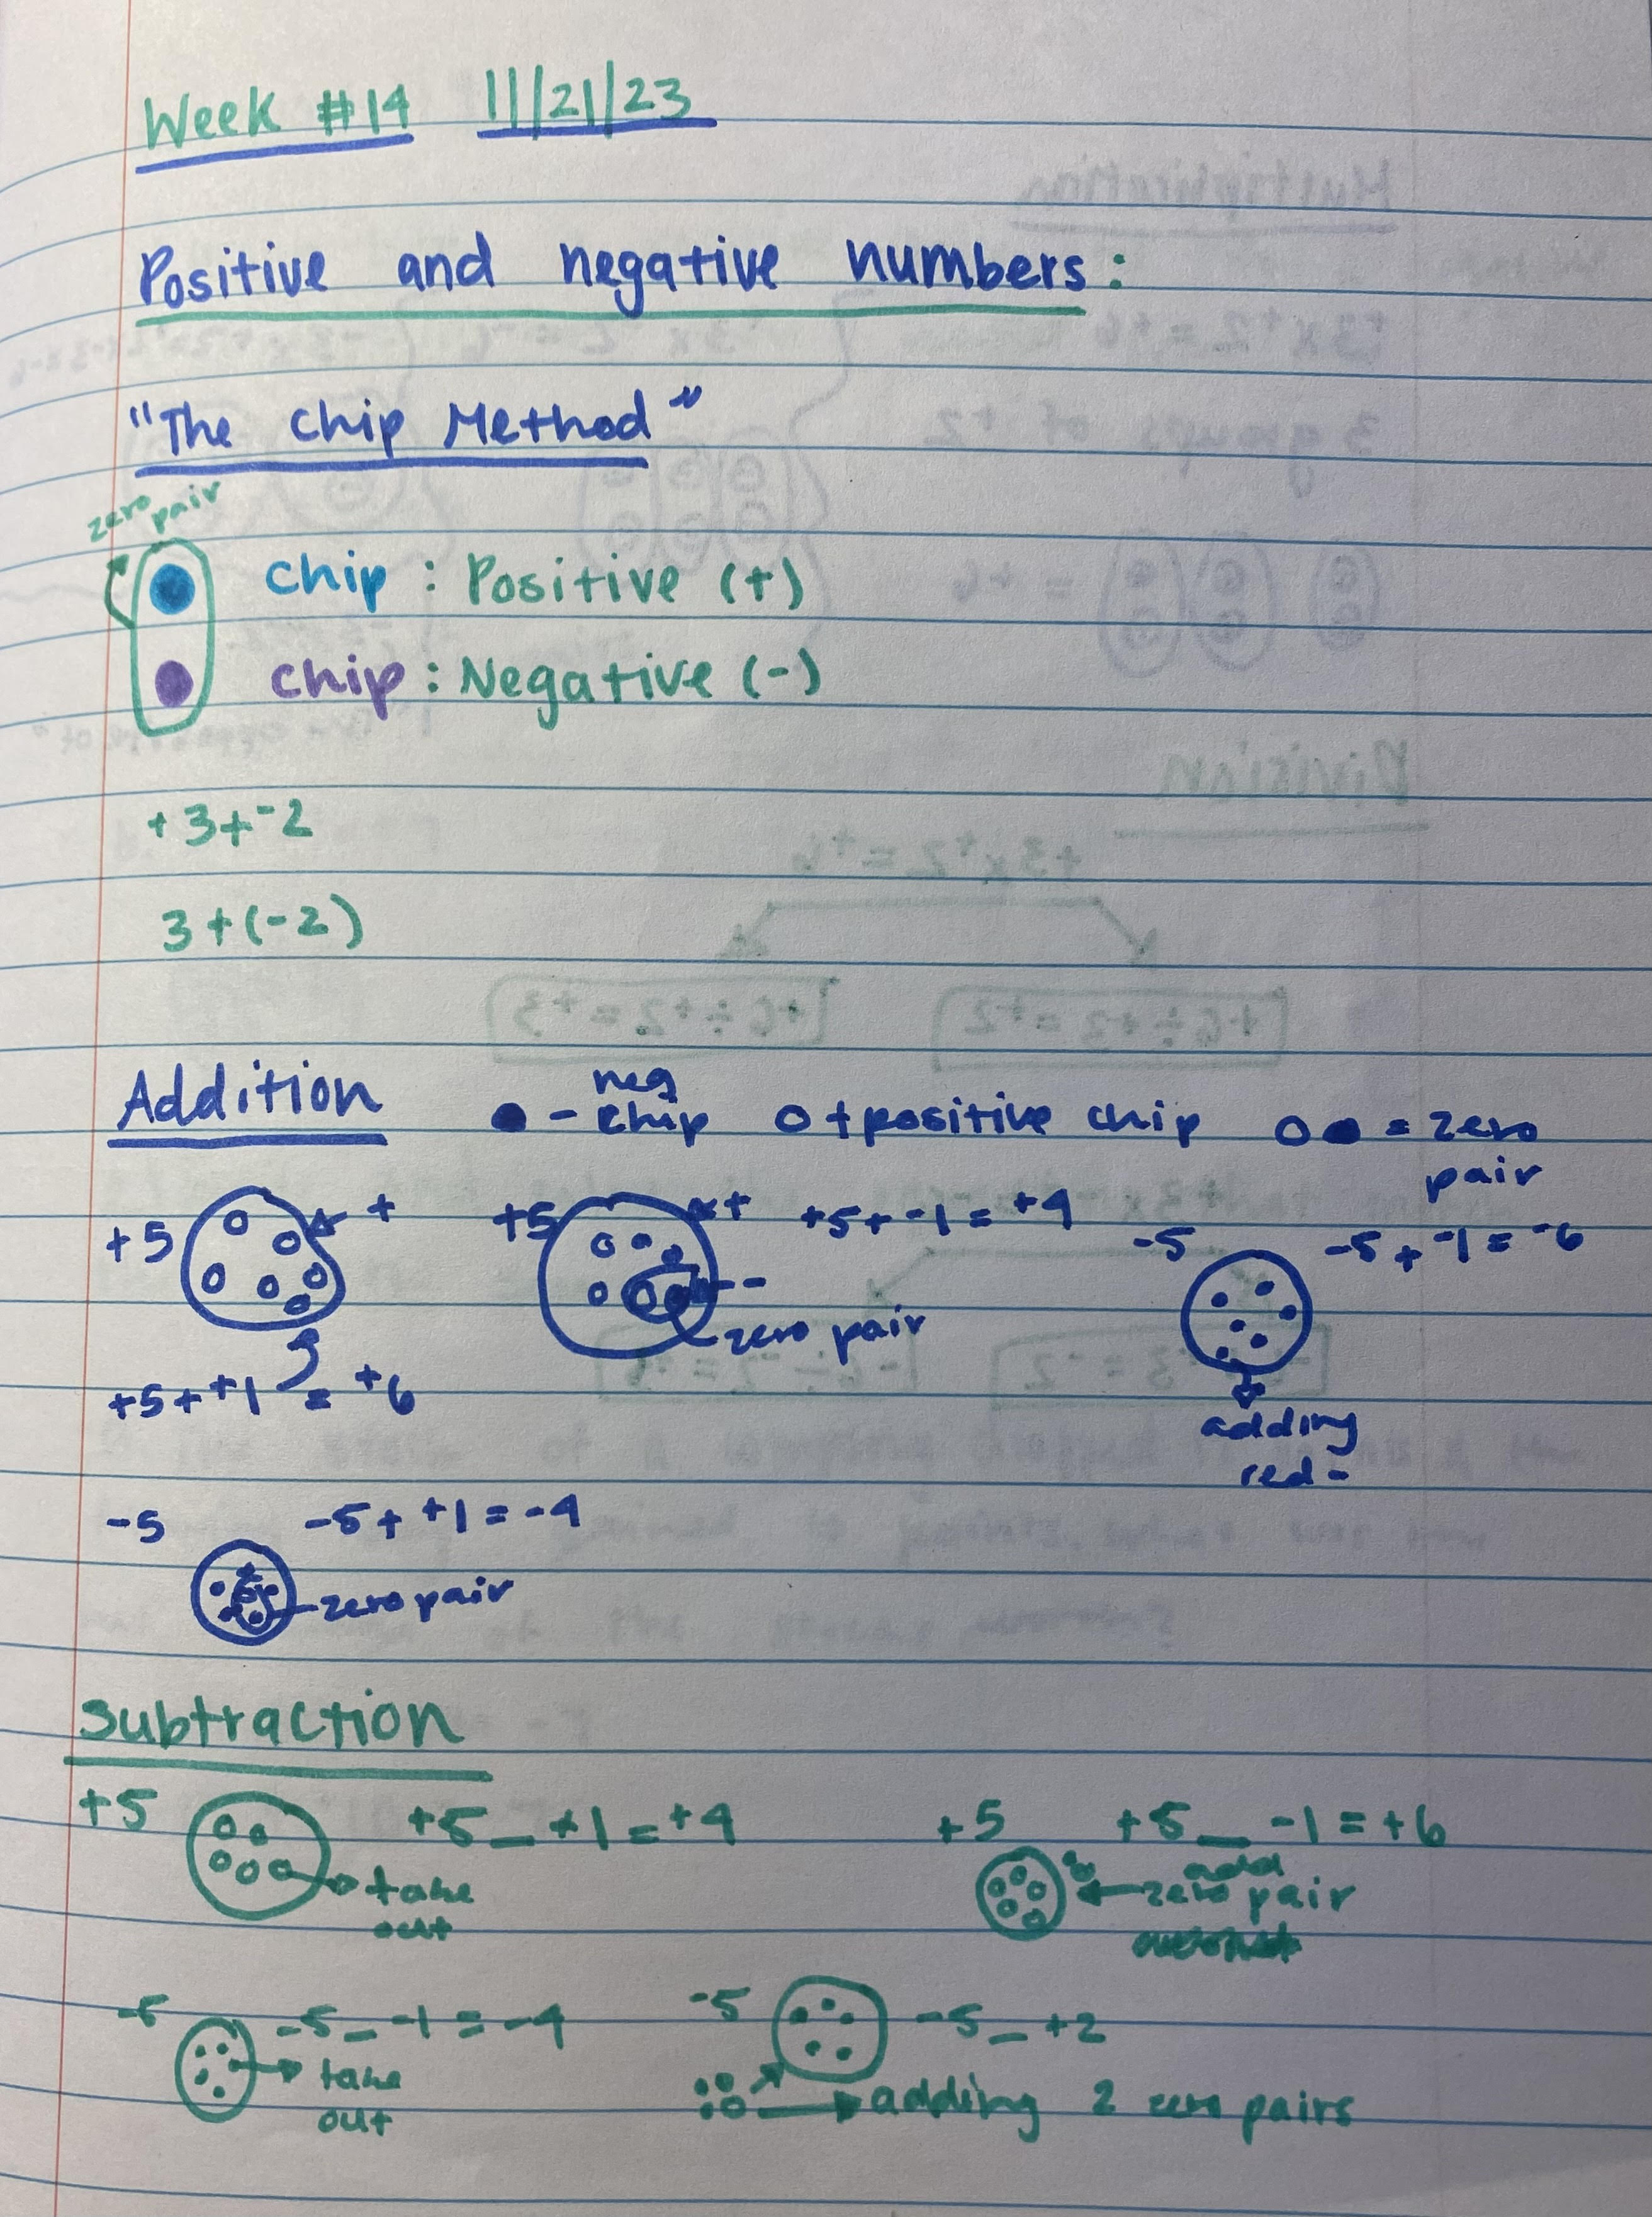 Week #14 11/21/23
Positive and negative numbers:
"The Chip Method"
zero pair
chip : Positive (+)
chip : Negative (-)
+3+-2
3+(-2)
Addition
neg
- chip + positive chip = zero
pair
+5 +
+5 + +5+-1=+4
-5 -5+-1=-6
-
zero pair
+5++1=+6
adding
red -
-5 -5++1=-4
zero pair
Subtraction
+5 +5_+1=+4 +5 +5_-1=+6
take
out
add
zero pair
-5 -5_-1=-4 -5 -5_+2
take
out
adding 2 zero pairs